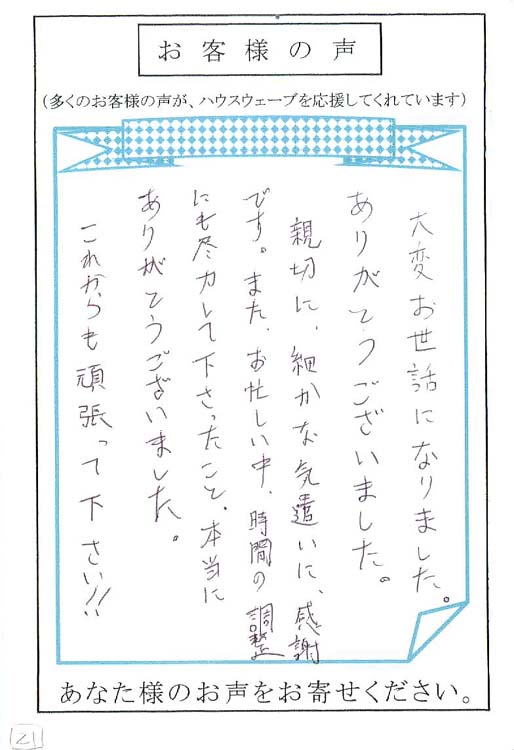 お客様の声
(多くのお客様の声が、ハウスウェーブを応援してくれています)
大変お世話になりました。
ありがとうございました。
親切に、細かな気遣いに、感謝
です。また、お忙しい中、時間の調整
にも尽力して下さったこと、本当に
ありがとうございました。
これからも頑張って下さい!!
あなた様のお声をお寄せください。
21